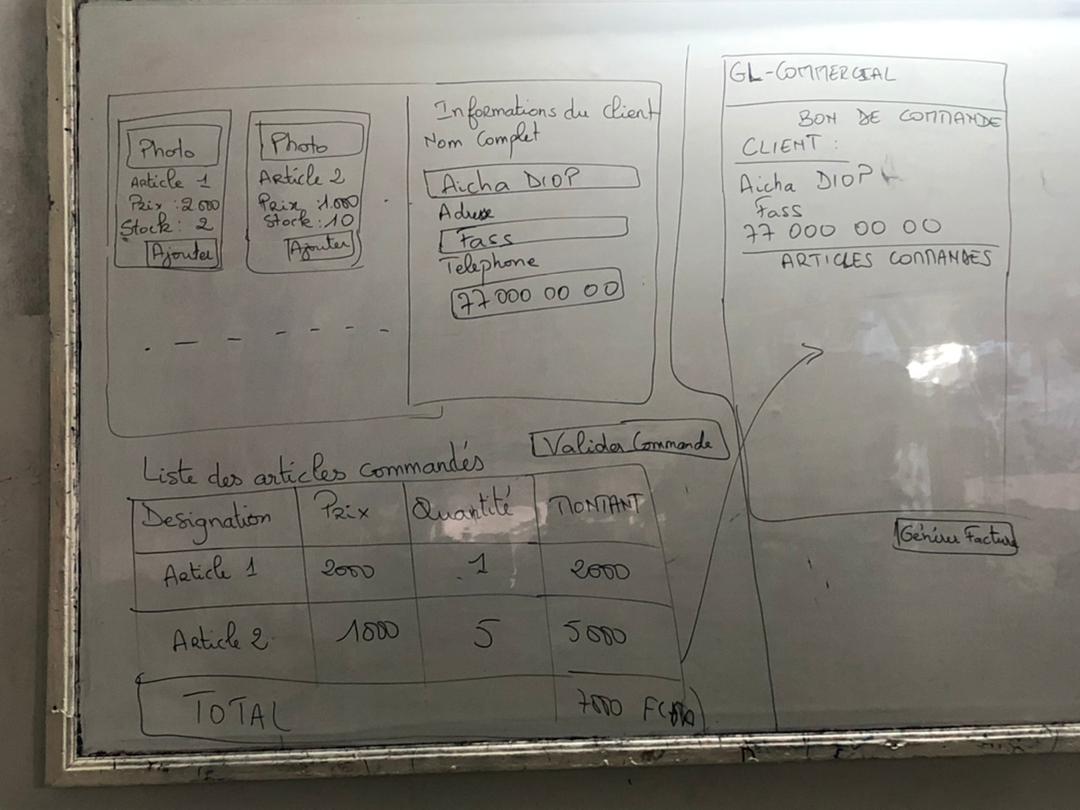 Photo
Article 1
Prix : 2000
Stock : 2
Ajouter
Photo
Article 2
Prix : 1.000
Stock : 10
Ajouter
Informations du client
Nom Complet
Aicha DIOP
Adresse
Fass
Telephone
77 000 00 00
Valider Commande
Liste des articles commandés
Designation Prix Quantité MONTANT
Article 1 2000 1 2000
Article 2 1000 5 5000
TOTAL 7000
GL-COMMERCIAL
BON DE COMMANDE
CLIENT :
Aicha DIOP
Fass
77 000 00 00
ARTICLES COMMANDES
Générer Facture